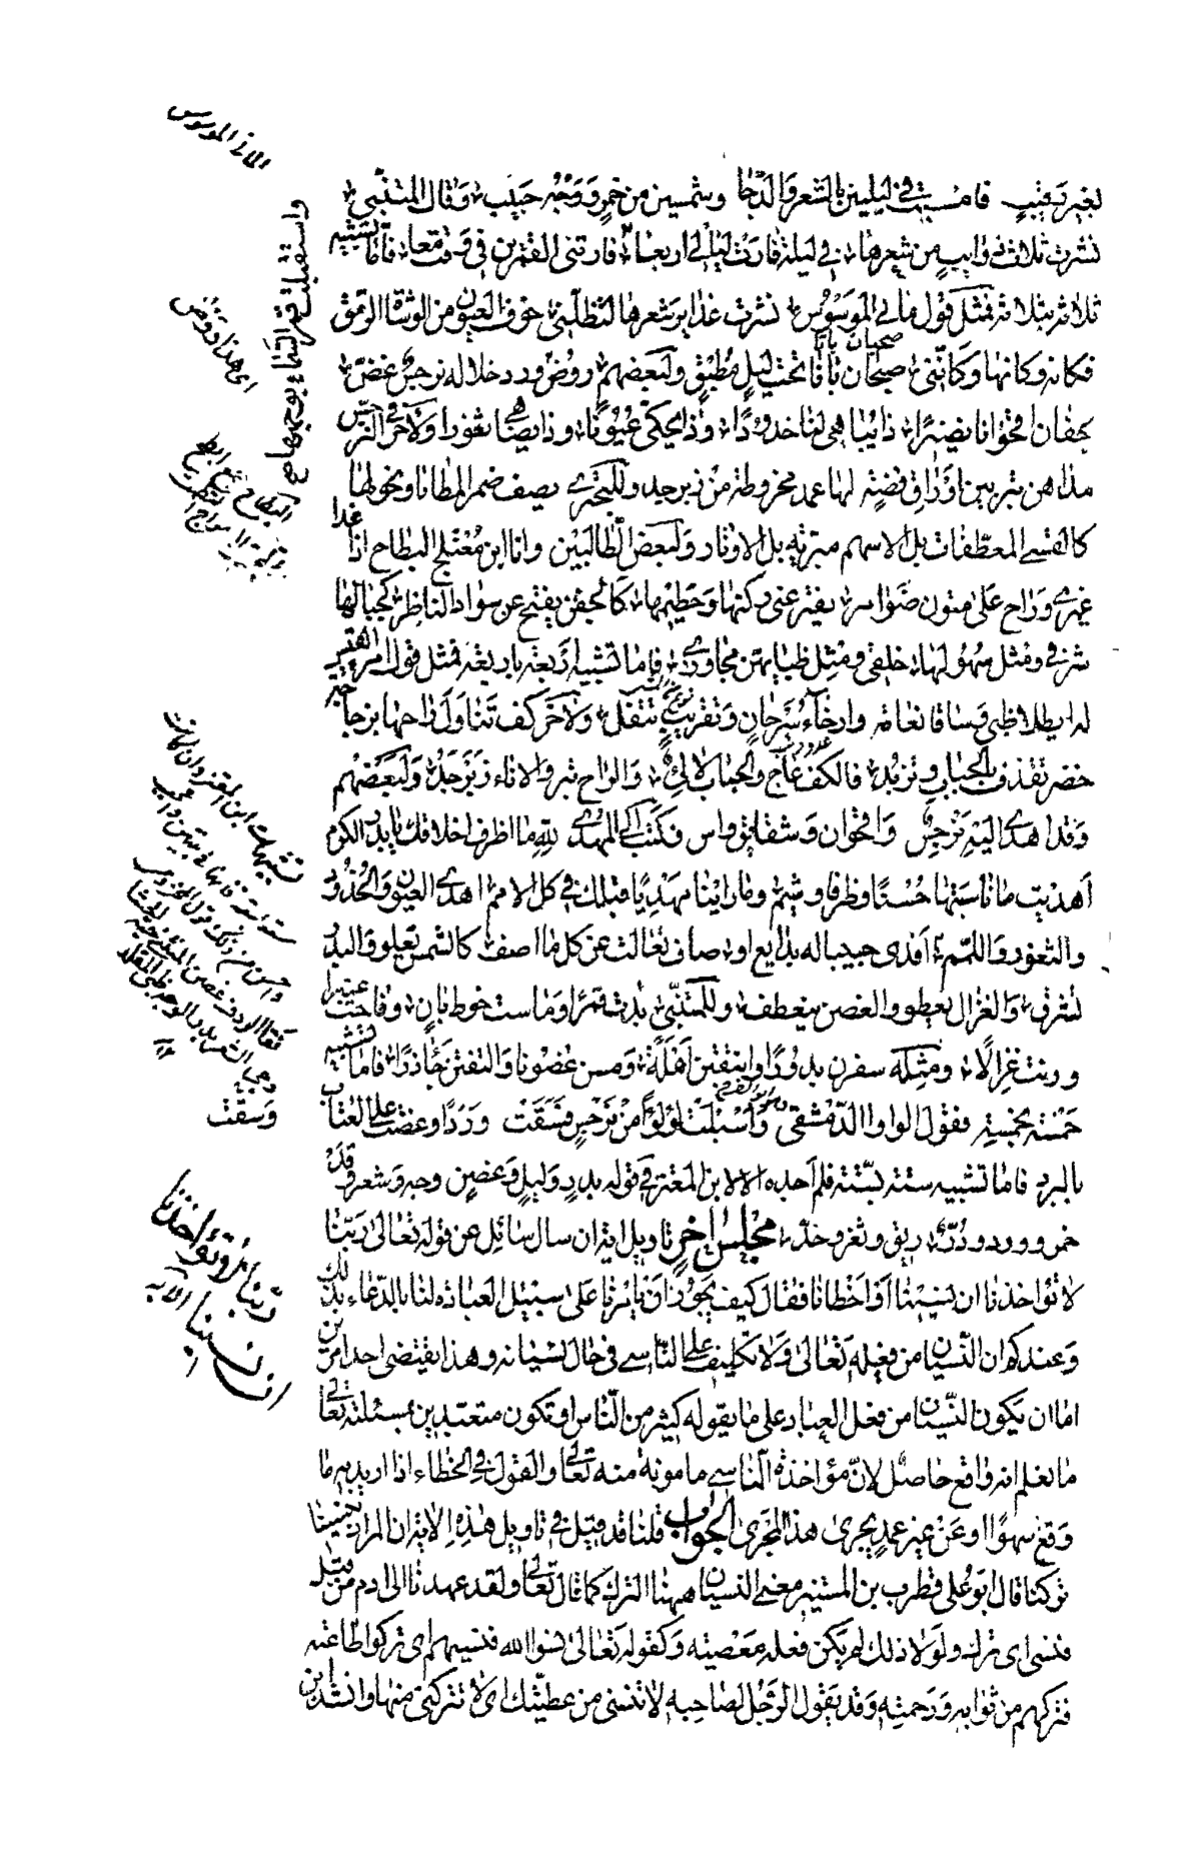 لغير رقيب فامسيت في ليلين بالشعر والدجا وشمسين من خمر ووجه حبيب وقال المتنبي
نشرت ثلاث ذوايب من شعرها في ليلة فارت ليالي اربعا فارتني القمرين في وقت معا فاما تشبيه
ثلاثة بثلاثة فمثل قول ماني الموسوس نشرت غداير شعرها لتظلني خوف العيون من الوشاة الرمق
فكانه وكانها وكانني صبحان باتا تحت ليل مطبق ولبعضهم روض ورد خلاله نرجس غض
يحفان اقحوانا نضيرا ذا يباهي لنا خدودا وذا يحكي عيونا وذا يضاهي ثغورا ولآخر في النرجس
مداهن تبر بين اوراق فضة لها عمد مخروطة من زبرجد وللبحتري يصف ضمر المطايا ونحولها
كالقسي المعطفات بل الاسهم مبرية بل الاوتار ولبعض الطالبيين وانا ابن معتلج البطاح اذا غدا
غيري وراح على متون ضوامر يفتر عني ركنها وحطيمها كالجفن يفتح عن سواد الناظر كجبالها
شرفي ومثل سهولها خلقي ومثل ظبائهن مجاوري فاما تشبيه اربعة باربعة فمثل قول امرئ القيس
له ايطلا ظبي وساقا نعامة وارخاء سرحان وتقريب تتفل ولآخر كف تناول راحها بزجاجة
خضر تقذف بالحباب وتزبد فالكف عاج والحباب لآلئ والراح تبر والاناء زبرجد ولبعضهم
وقد اهدى اليه نرجس واقحوان وشقايق وآس فكتب الى المهدي لله ما اظرف اخلاقك يا بدر الكرم
اهديت ما ناسبتها حسنا وظرفا وشيم وما راينا مهديا قبلك في كل الامم اهدى العيون والخدود
والثغور واللمم افدي حبيبا له بدايع اوصاف تعالت عن كل ما اصف كالشمس يعلو والبدر
يشرق والغزال يعطو والغصن ينعطف وللمتنبي بدت قمرا وماست خوط بان وفاحت عنبرا
ورنت غزالا ومثله سفرن بدورا وانتقبن اهلة ومسن غصونا والتفتن جآذرا فاما تشبيه
خمسة بخمسة فقول الواوا الدمشقي واسبلت لؤلؤا من نرجس فسقت وردا وعضت على العناب
بالبرد فاما تشبيه ستة بستة فلم اجده الا لابن المعتز في قوله بدر وليل وغصن وجه وشعر وقد
خمر وورد ودر ريق وثغر وخد مجلس اخر تاويل اية ان سال سائل عن قوله تعالى ربنا
لا تؤاخذنا ان نسينا او اخطانا فقال كيف يجوز ان يامرنا على سبيل العبادة لنا بالدعاء بذلك
وعندكم ان النسيان من فعله تعالى ولا تكليف على الناسي في حال نسيانه وهذا يقتضي احد امرين
اما ان يكون النسيان من فعل العباد على ما يقوله كثير من الناس او تكون متعبدين بمسئلته تعالى
ما نعلم انه واقع حاصل لان مؤاخذة الناسي مامونة منه تعالى والقول في الخطاء اذا اريد به ما
وقع سهوا او عن غير عمد يجري هذا المجرى الجواب قلنا قد قيل في تاويل هذه الاية ان المراد بنسينا
تركنا قال ابو علي قطرب بن المستنير معنى النسيان ههنا الترك كما قال تعالى ولقد عهدنا الى ادم من قبل
فنسي اي ترك ولولا ذلك لم يكن فعله معصيته وكقوله تعالى نسوا الله فنسيهم اي تركوا طاعته
فتركهم من ثوابه ورحمته وقد يقول الرجل لصاحبه لا تنسني من عطيتك اي لا تتركني منها وانشد ابن
واستقبلت قمر السماء بوجهها
وسقت
ربنا لا تؤاخذنا
ان نسينا الآية